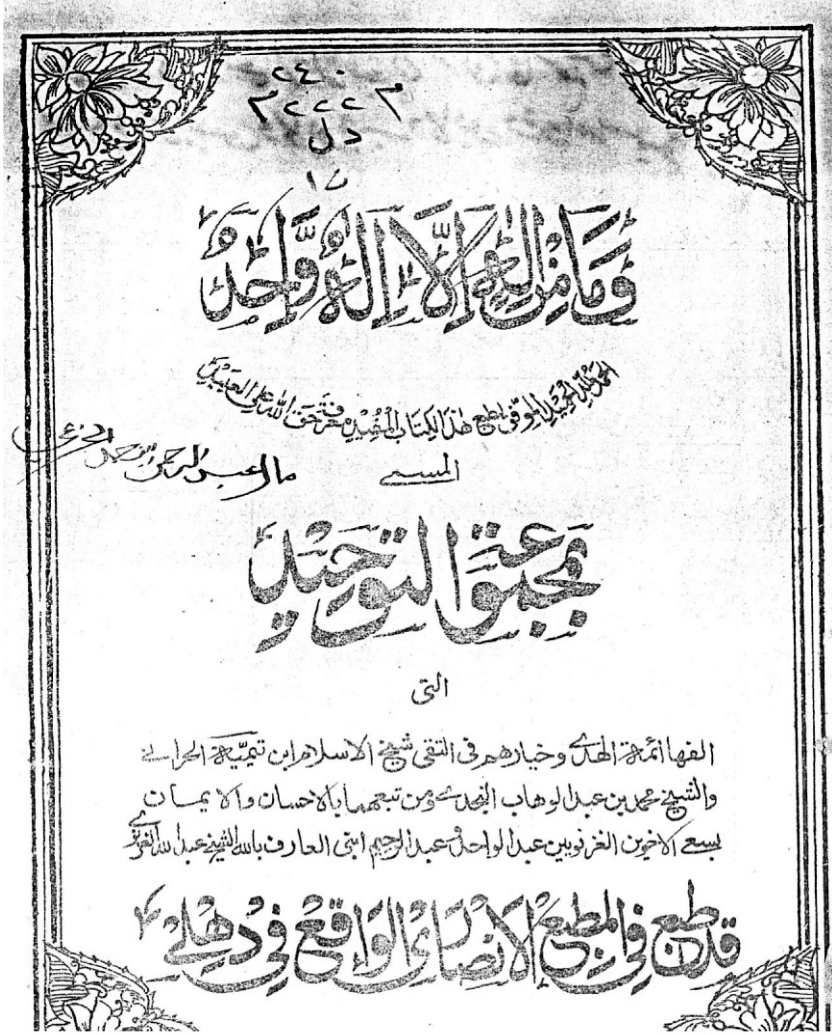 ٢٤٠
٢٢٢٢٣
د ل
وَمَا مِنْ اِلٰهٍ اِلَّا اِلٰهٌ وَّاحِدٌ
الحمد لله الحميد الموفق لطبع هذا الكتاب المفيد معرفة حق الله على العبيد
مال عبدالرحمن محمد
المسمى
بمجموعة التوحيد
التى
الفها ائمة الهدے وخيارهم فى التقى شيخ الاسلام ابن تيميّة الحرانے
والشيخ محمد بن عبد الوهاب النجدے ومن تبعهما بالاحسان والايمان
بسعے الاخوين الغزنويين عبد الواحد و عبد الرحيم ابنى العارف بالله الشيخ عبد الله الغزنوے
قد طبع فى المطبع الانصارى الواقع فى دهلے